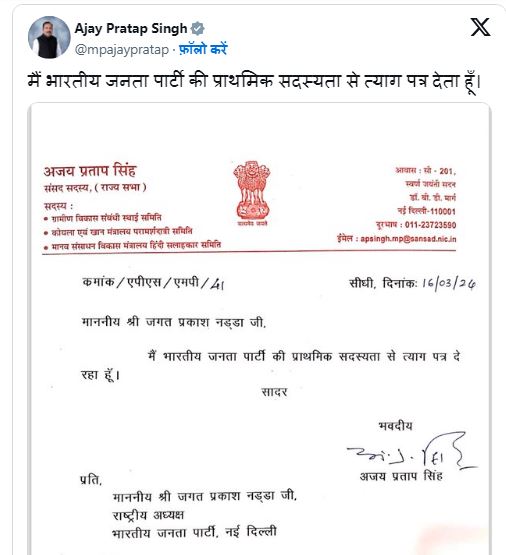 Ajay Pratap Singh
@mpajaypratap · फ़ॉलो करें
मैं भारतीय जनता पार्टी की प्राथमिक सदस्यता से त्याग पत्र देता हूँ।
अजय प्रताप सिंह
संसद सदस्य, ( राज्य सभा )
सदस्य :
• ग्रामीण विकास संबंधी स्थाई समिति
• कोयला एवं खान मंत्रालय परामर्शदात्री समिति
• मानव संसाधन विकास मंत्रालय हिंदी सलाहकार समिति
सत्यमेव जयते
आवास : सी - 201,
स्वर्ण जयंती सदन
डॉ. बी. डी. मार्ग
नई दिल्ली-110001
दुरभाष : 011-23723590
ईमेल : apsingh.mp@sansad.nic.in
कमांक/एपीएस/एमपी/41
सीधी, दिनांक: 16/03/24
माननीय श्री जगत प्रकाश नड्डा जी,
मैं भारतीय जनता पार्टी की प्राथमिक सदस्यता से त्याग पत्र दे
रहा हूँ।
सादर
भवदीय
अजय प्रताप सिंह
प्रति,
माननीय श्री जगत प्रकाश नड्डा जी,
राष्ट्रीय अध्यक्ष
भारतीय जनता पार्टी, नई दिल्ली